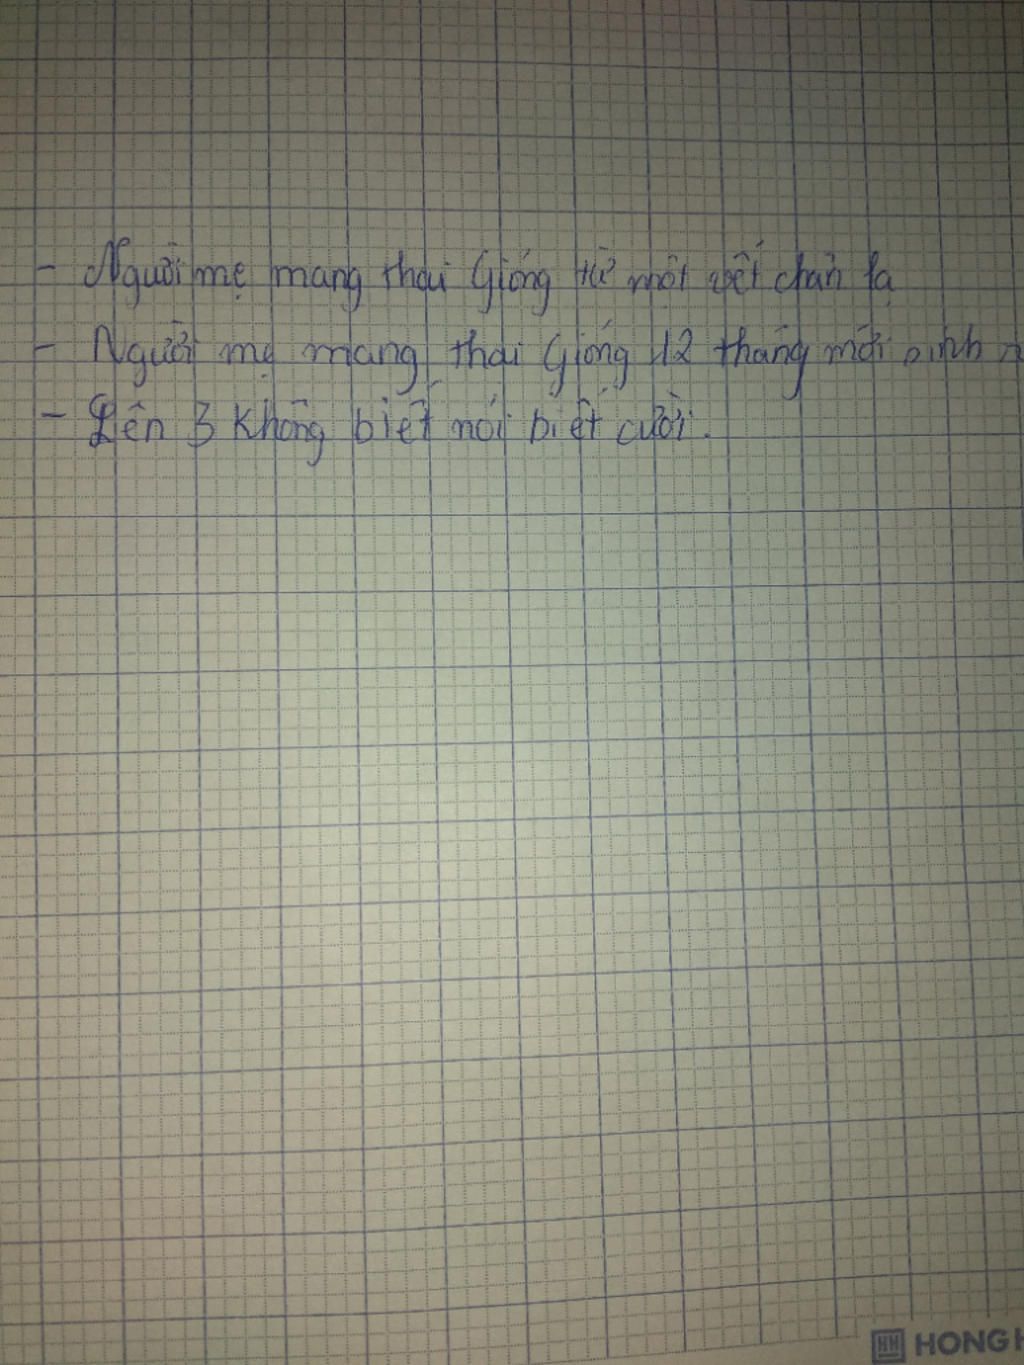 - Người mẹ mang thai Gióng từ một vết chân lạ
- Người mẹ mang thai Gióng 12 tháng mới sinh
- Lên 3 không biết nói biết cười.
HONG